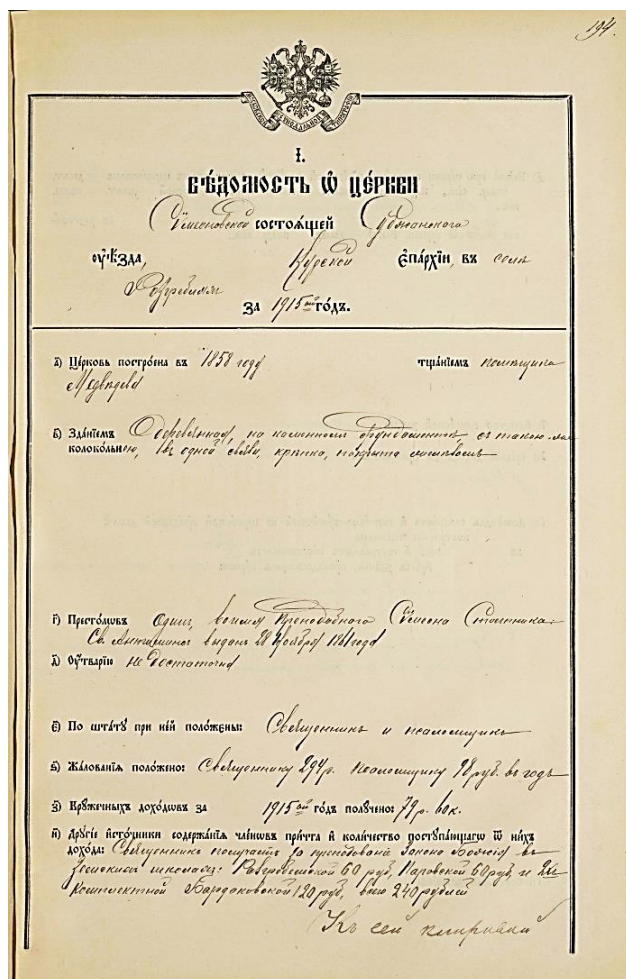 194.
І.
Вѣдомость ѡ церкви
Сѵмеоновской состоящей Суджанского
оуѣзда, Курской епархіи, въ селѣ
Разгребляхъ
за 1915ый годъ.
а) Церковь построена въ 1858 году тщаніемъ помѣщика
Медвѣдева
б) Зданіемъ деревянная, на каменномъ фундаментѣ съ такою-же
колокольнею, въ одной связи, крѣпка, покрыта желѣзомъ
г) Престоловъ Одинъ, во имя Преподобнаго Сѵмеона Столпника
Св. Антиминсъ выданъ 28 Ноября года
д) Оутварію не достаточна
е) По штату при ней положены: Священникъ и псаломщикъ
ѕ) Жалованія положено: Священнику 294 р. Псаломщику 98 руб. въ годъ
з) Кружечныхъ доходовъ за 1915ой годъ получено: 79 р. 60 к.
и) Другіе источники содержанія членовъ причта и количество поступающаго ѿ нихъ
дохода: Священникъ получаетъ за преподованіе Закона Божія въ
Земскихъ школахъ: Разгребельской 60 руб, 60 руб, и 2хъ
комплектной 120 руб, всего 240 рублей
Къ сей